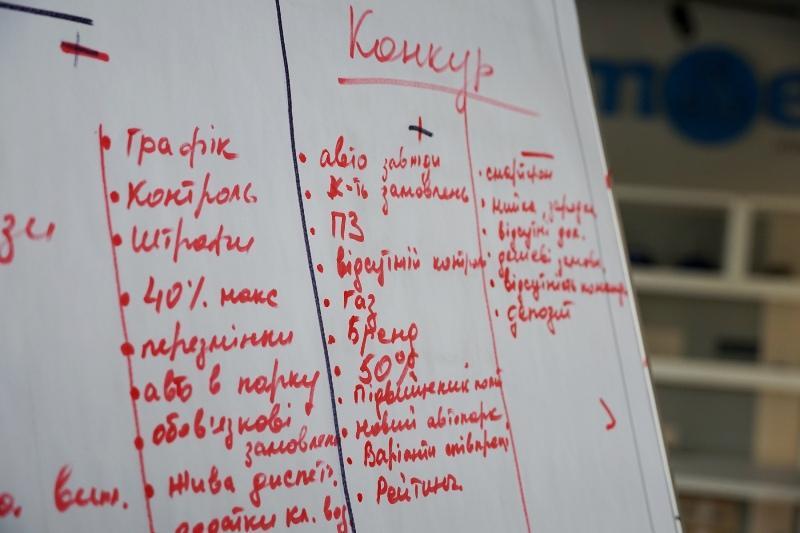 Конкур
Графік
Контроль
Штрафи
40% макс
перезмінки
авто в парку
обов'язкові
замовлен
Жива диспетч.
додатки кл. вод
вит.
+
авто завжди
К-ть замовлень
ПЗ
відсутній контроль
Газ
Бренд
50%
Підвищений попит
Новий автопарк
Варіанти співпраці
Рейтинг
—
смартфон
відсутні док.
дешеві замовл.
відсутність
депозит